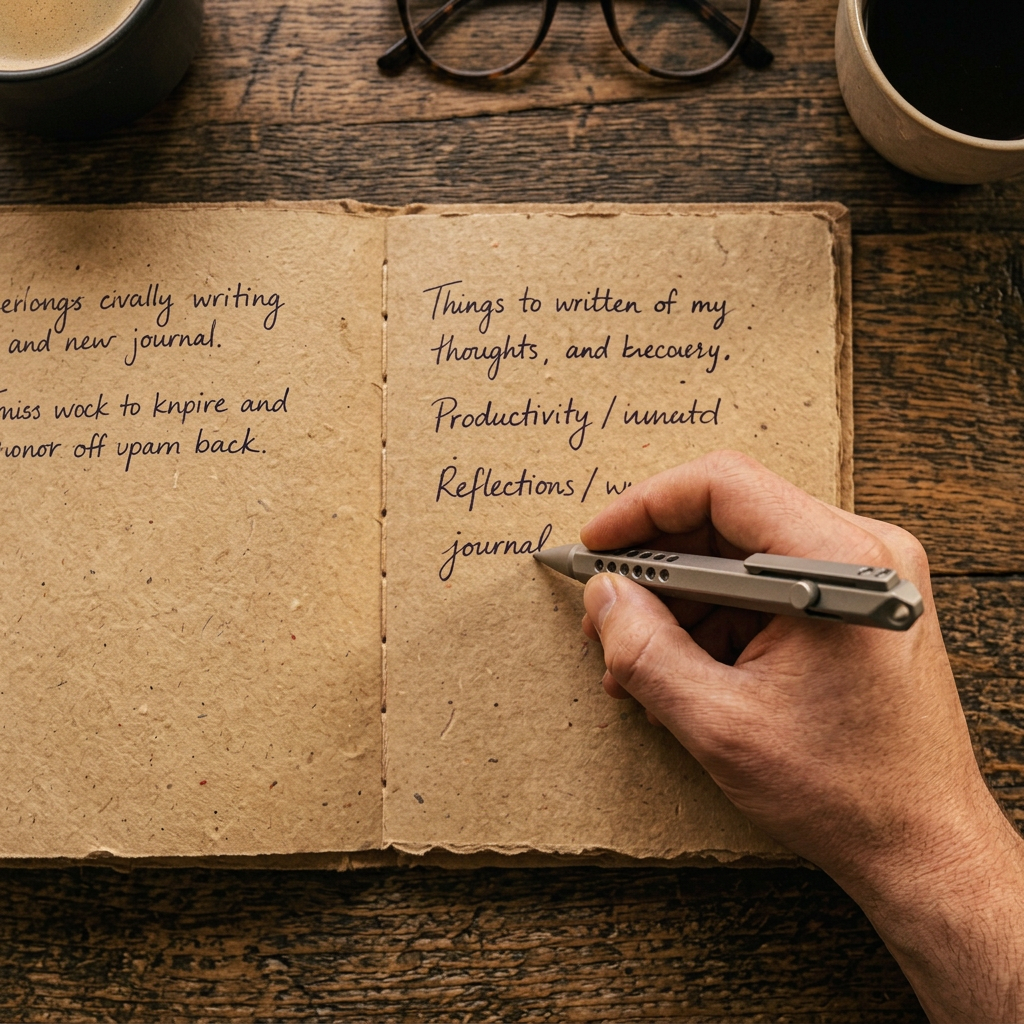 erlongs civally writing
and new journal.
miss wock to knpire and
onor off upam back.
Things to written of my
thoughts, and
Productivity /
Reflections /
journal